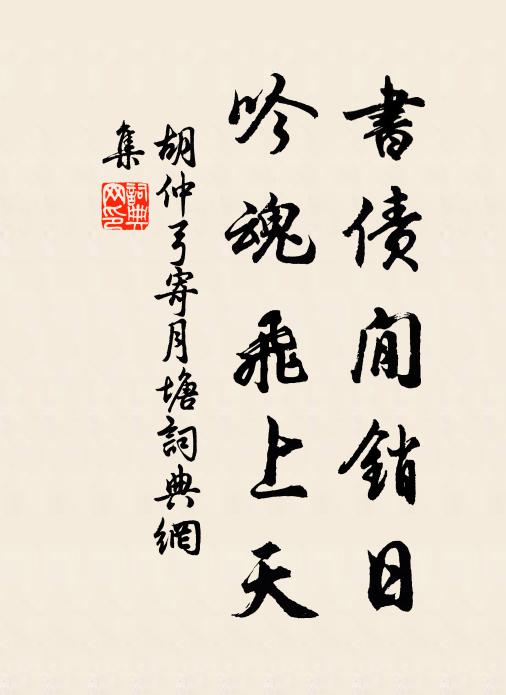 書債閒銷日
吟魂飛上天
胡仲弓寄月塘詞典網
集
詞典
网印